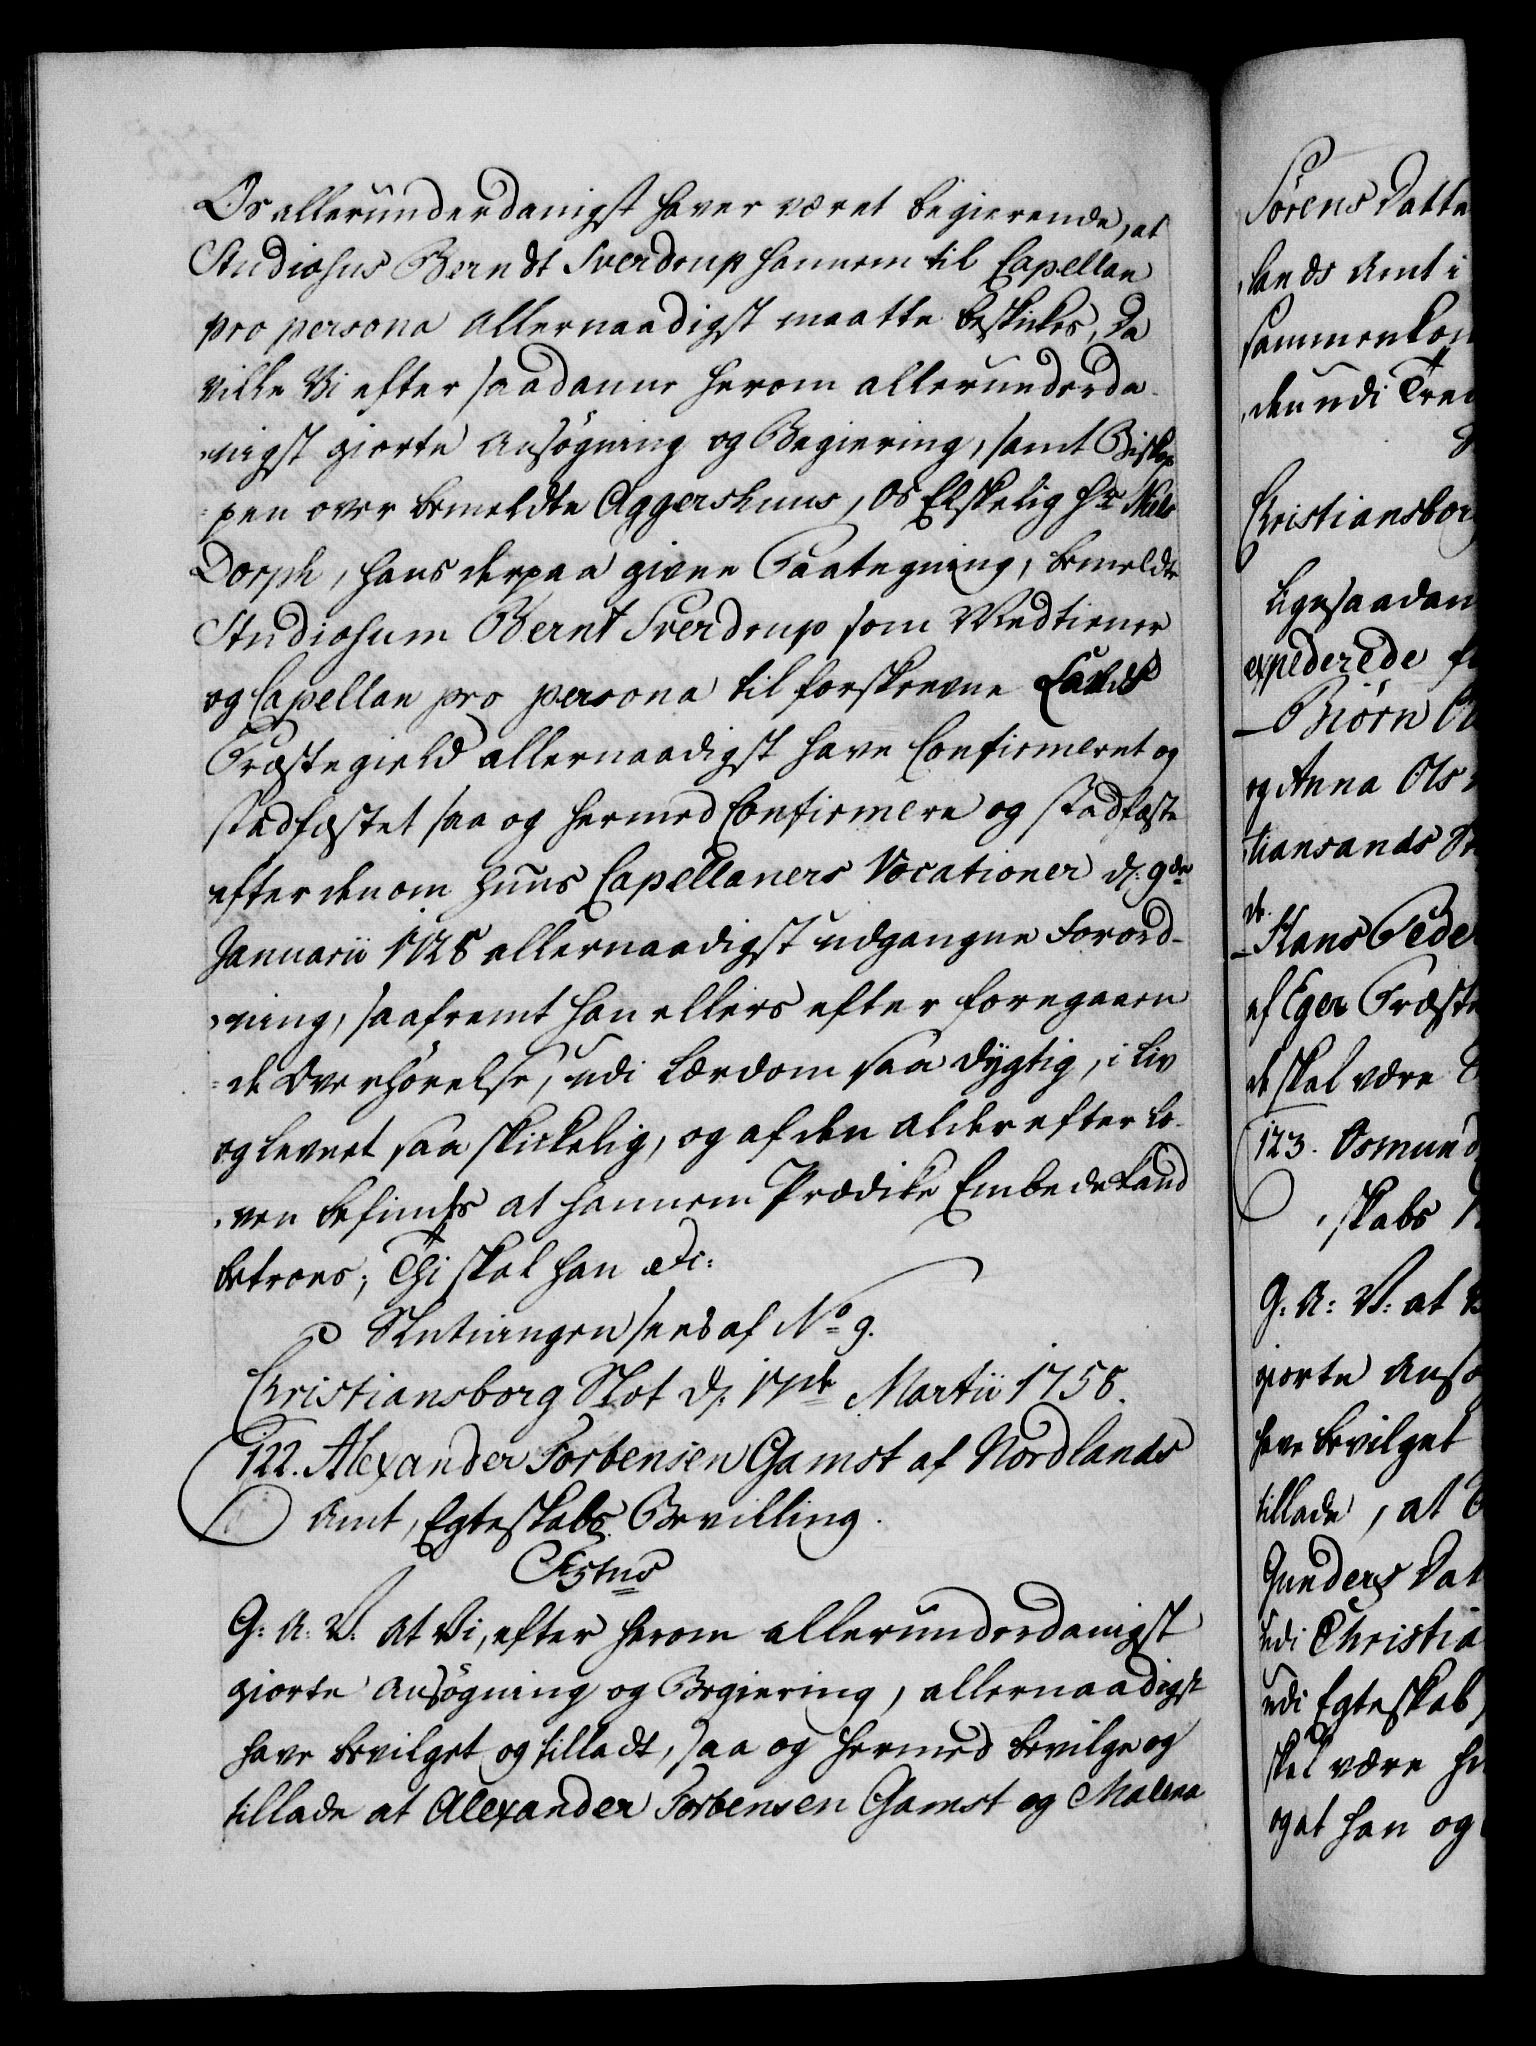 Os allerunderdanigst haver været begierende, at
Studiosus Berndt Sverdrup hannem til Capellan
pro persona allernaadigst maatte beskikes, Da
ville Vi efter saadanne herom allerunderda-
nigst giorte Ansøgning og Begiering, samt Biskop-
pen over bemeldte Aggershuus, Os Elskelig Hr. Niels
Dorph, hans derpaa givne Paategning, bemeldte
Studiosum Bernt Sverdrup som Medtiener
og Capellan pro persona til forskrevne
Præstegield allernaadigst have Confirmeret og
stadfæstet saa og hermed Confirmere og stadfæste
efter den om Huus Capellaners Vocationer d. 9de
Januarii 1728 allernaadigst udgangne Forord-
ning, saafremt han ellers efter foregaaen-
de Overhørelse, udi Lærdom saa dygtig, i Liv
og Levnet saa skikkelig, og af den Alder efter Lo-
ven befindes at hannem Prædike Embede kand
betroes; Thi skal han etc:
Slutningen sees af No 9.
Christiansborg Slot d. 17de Martii 1758.
122. Alexander Torbensen Gamst af Nordlands
Amt, Egteskabs Bevilling.
G: A: V: at Vi, efter herom allerunderdanigst
giorte Ansøgning og Begiering, allernaadigst
have bevilget og tilladt, saa og hermed bevilge og
tillade at Alexander Torbensen Gamst og Malena
Sørens Datte
lands Amt i
sammenkom
den udi Tred
Christiansborg
Ligesaadan
expederede f
Biørn
og Anna Ols
tiansands St
d.
Hans Peder
af Eger Præste
de skal være
123. Osmund
skabs
G: A: V: at
giorte Ansø
have bevilget
tillade, at
Gunders Dat
udi Christia
udi Egteskab
skal være
og at han og